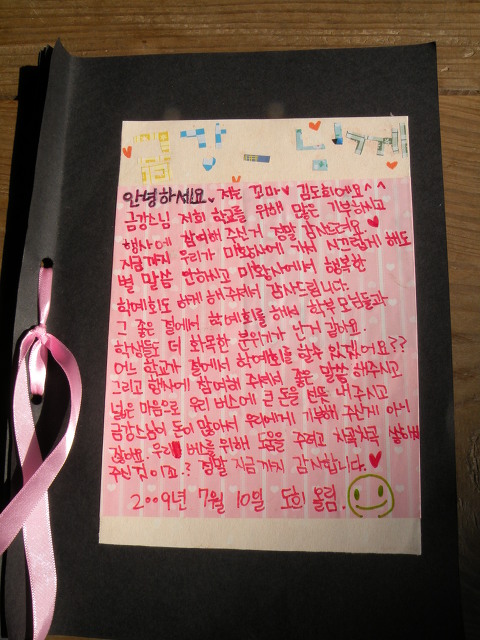 금강 스님께
안녕하세요. 저는 꼬마♥ 김도희에요^^
금강스님 저희 학교를 위해 많은 기부하시고
행사에 참여해 주신거 정말 감사드려요.♥
지금까지 우리가 미황사에 가서 시끄럽게 해도
별 말씀 안하시고 미황사에서 행복한
학예회도 하게 해주셔서 감사드립니다.
그 좋은 절에서 학예회를 해서 학부모님들과
학생들도 더 화목한 분위기가 난거 같아요.
어느 학교가 절에서 학예회를 할수 있겠어요??
그리고 행사에 참여해 주셔서 좋은 말씀 해주시고
넓은 마음으로 우리 버스에 큰 돈을 턴뜻 내 주시고
금강스님이 돈이 많아서 우리에게 기부해 주신게 아니
잖아요. 우리 버스를 위해 도움을 주려고 차곡차곡
주신 것이죠.? 정말 지금까지 감사합니다.♥
2009년 7월 10일 도희 올림.